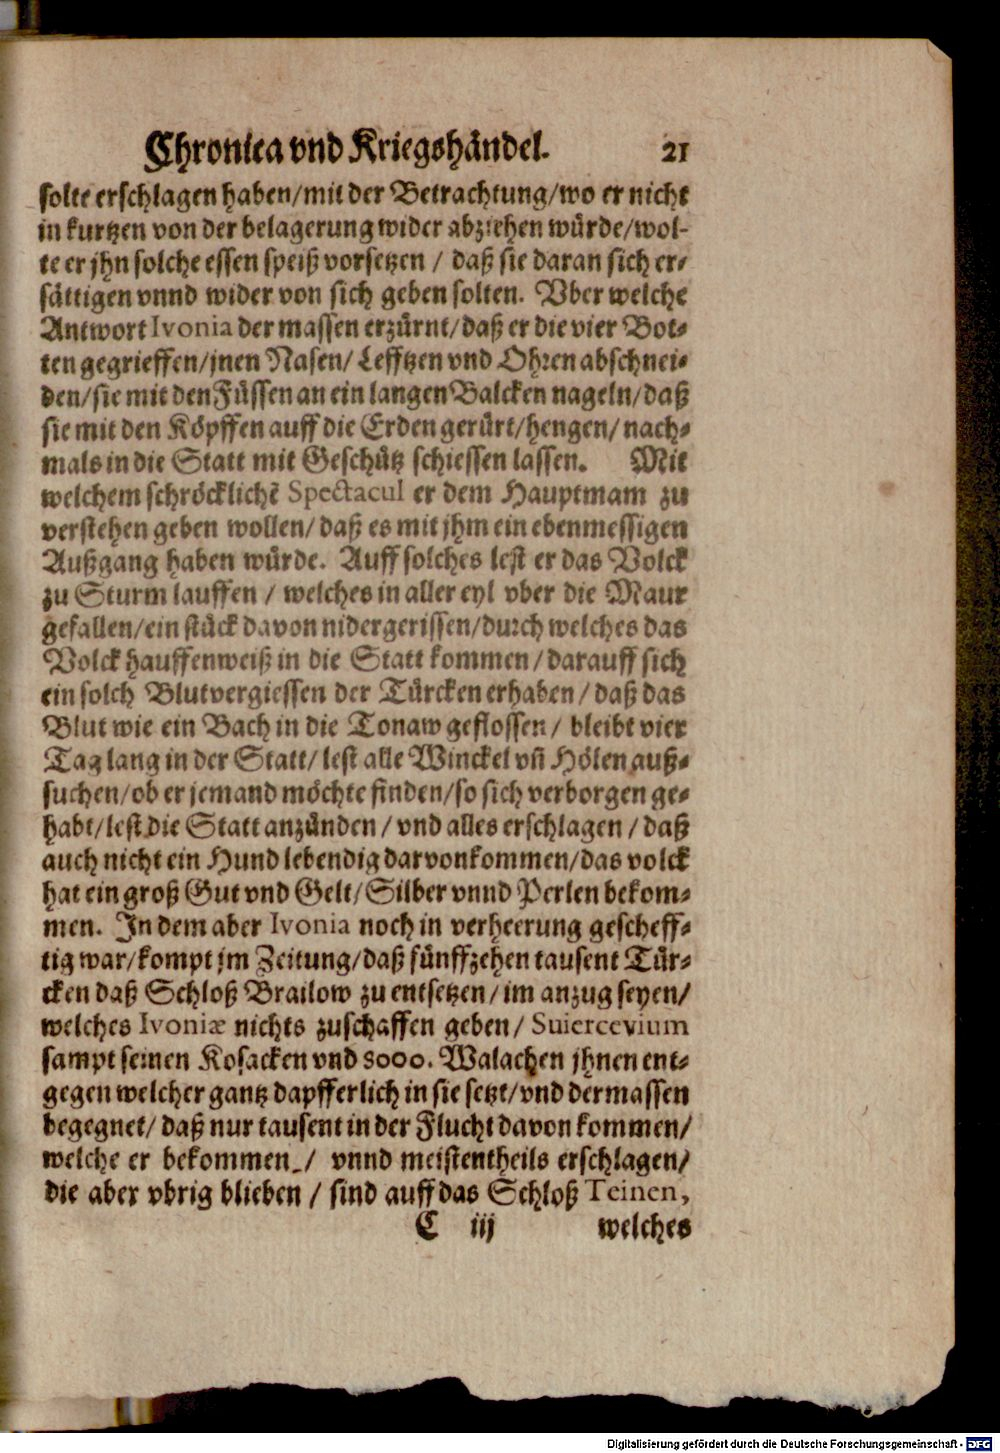 Chronica vnd Kriegshändel. 21
solte erschlagen haben/mit der Betrachtung/wo er nicht
in kurtzen von der belagerung wider abziehen würde/wol-
te er jhn solche essen speiß vorsetzen / daß sie daran sich er-
sättigen vnnd wider von sich geben solten. Vber welche
Antwort Ivonia der massen erzürnt/daß er die vier Bot-
ten gegrieffen/jnen Nasen/Lefftzen vnd Ohren abschnei-
den/sie mit den Füssen an ein langen Balcken nageln/daß
sie mit den Köpffen auff die Erden gerürt/hengen/nach-
mals in die Statt mit Geschütz schiessen lassen. Mit
welchem schröcklichẽ Spectacul er dem Hauptmam zu
verstehen geben wollen/daß es mit jhm ein ebenmessigen
Außgang haben würde. Auff solches lest er das Volck
zu Sturm lauffen / welches in aller eyl vber die Maur
gefallen/ein stück davon nidergerissen/durch welches das
Volck hauffenweiß in die Statt kommen/darauff sich
ein solch Blutvergiessen der Türcken erhaben/daß das
Blut wie ein Bach in die Tonaw geflossen/ bleibt vier
Tag lang in der Statt/lest alle Winckel vñ Hölen auß-
suchen/ob er jemand möchte finden/so sich verborgen ge-
habt/lest die Statt anzünden/vnd alles erschlagen/daß
auch nicht ein Hund lebendig darvonkommen/das volck
hat ein groß Gut vnd Gelt/Silber vnnd Perlen bekom-
men. In dem aber Ivonia noch in verheerung gescheff-
tig war/kompt jm Zeitung/daß fünffzehen tausent Tür-
cken daß Schloß Brailow zu entsetzen/im anzug seyen/
welches Ivoniæ nichts zuschaffen geben/ Suiercevium
sampt seinen Kosacken vnd 3000. Walachen jhnen ent-
gegen welcher gantz dapfferlich in sie setzt/vnd dermassen
begegnet/daß nur tausent in der Flucht davon kommen/
welche er bekommen / vnnd meistentheils erschlagen/
die aber vbrig blieben / sind auff das Schloß Teinen,
C iij welches
Digitalisierung gefördert durch die Deutsche Forschungsgemeinschaft - DFG